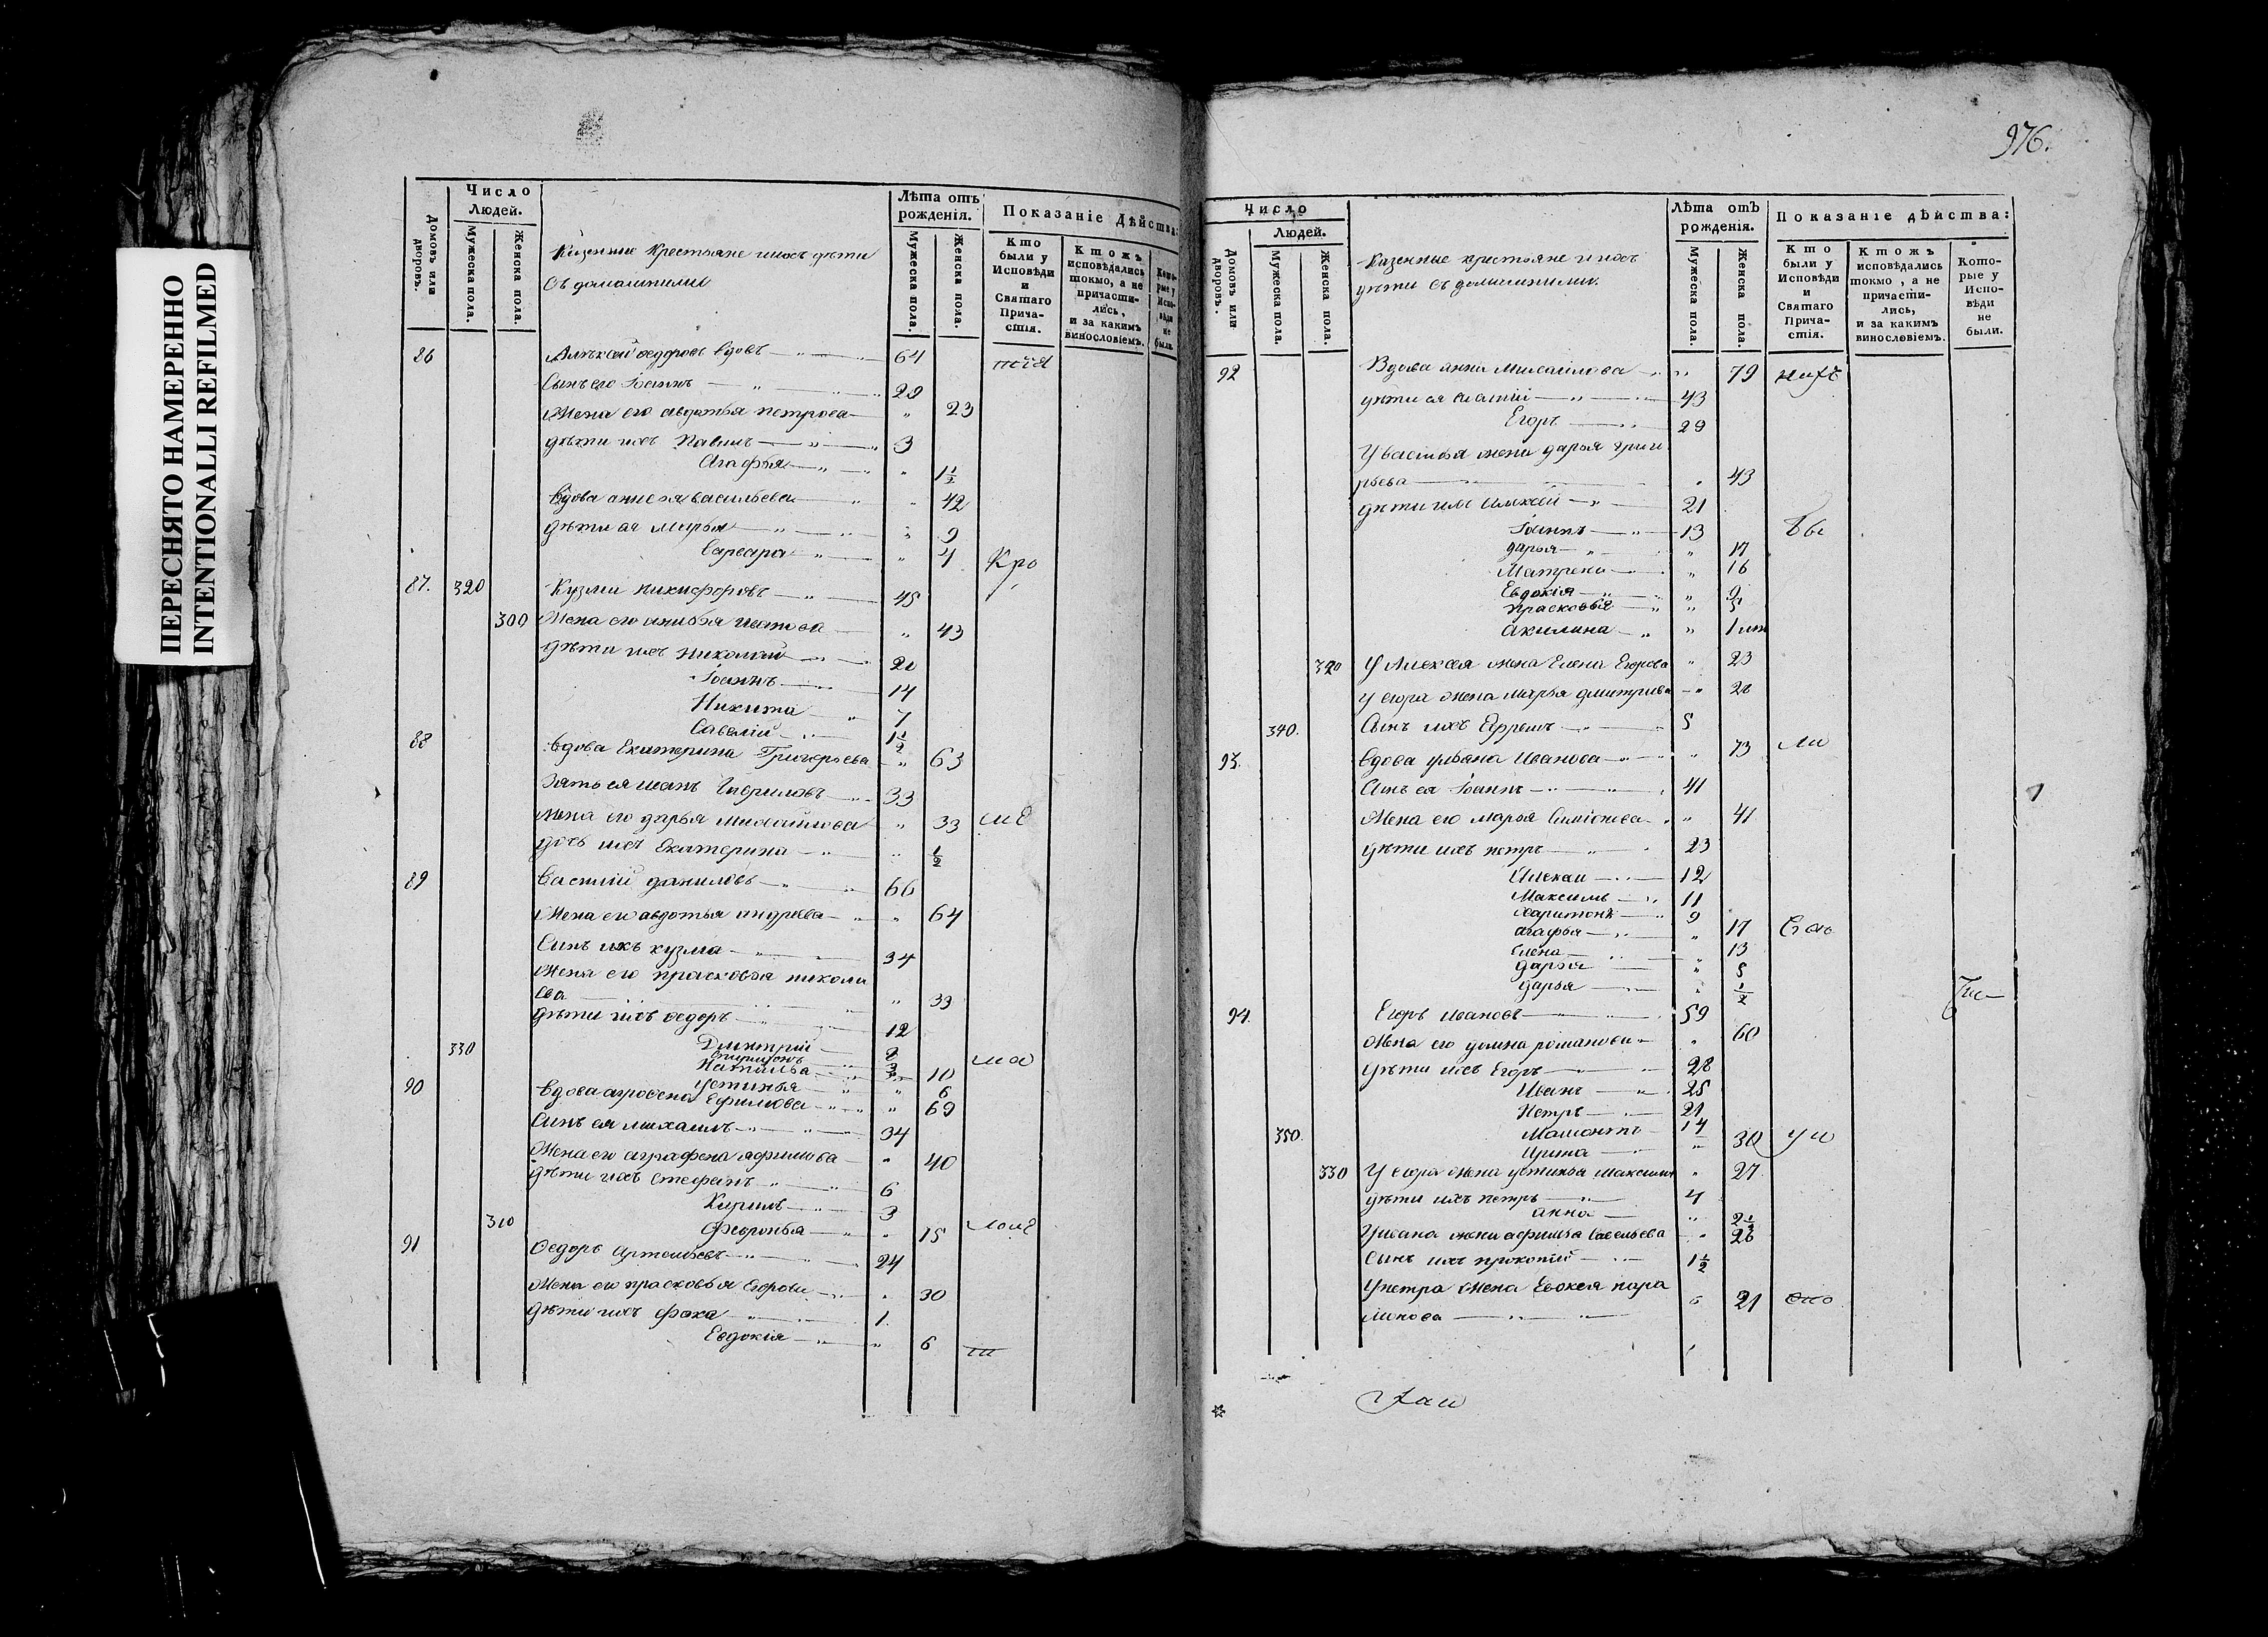 ПЕРЕСНЯТО НАМЕРЕННО
INTENTIONALLI REFILMED
Число
Людей.
Домовъ или дворовъ.
Мужеска пола.
Женска пола.
Казенные Крестьяне и ихъ дѣти
съ домашними
Лѣта отъ рожденія.
Мужеска пола.
Женска пола.
Показаніе Дѣйства:
Кто были у Исповѣди и Святаго Причастія.
Ктожъ исповѣдались токмо, а не причастились, и за какимъ винословіемъ.
Которые у Исповѣди не были.
Алексѣй Ѳедоровъ вдовъ 64
Сынъ его Іоаннъ 29
Жена его авдотья петрова 23
дѣти ихъ Павелъ 3
Агафья 1 1/2
Вдова васильева 42
дѣти ея Марья 9
Варвара 4 Кро
87. 320 Кузма никифоровъ 45
300 Жена его 43
дѣти ихъ николай
Іоаннъ 14
Никита 7
Савелій 1 1/2
88 вдова Екатерина Григорьева 63
Зять ея иванъ Гавриловъ 33
жена его дарья михайлова 33
дочь ихъ Екатерина 1/2
89 Василій даниловъ 66
Жена его авдотья андреева 64
Сынъ ихъ кузма 34
Жена его прасковья никола
ева 33
дѣти ихъ ѳедоръ 12
330 Дмитрій 8
Спиридонъ 3
Наталья 10
Устинья 6
90 вдова Ефимова 69
Сынъ ея михаилъ 34
Жена его аграфена 40
дѣти ихъ стефанъ 6
Кирилъ 3
310 Февронья 15
91 Ѳедоръ Артемьевъ 24
Жена его прасковья Егорова 30
дѣти ихъ фока 1
Евдокія 6
976.
Число
Людей.
Домовъ или дворовъ.
Мужеска пола.
Женска пола.
Казенные крестьяне и ихъ
дѣти съ домашними.
Лѣта отъ рожденія.
Мужеска пола.
Женска пола.
Показаніе дѣйства:
Кто были у Исповѣди и Святаго Причастія.
Ктожъ исповѣдались токмо, а не причастились, и за какимъ винословіемъ.
Которые у Исповѣди не были.
92 Вдова анна Михаилова 79 нихъ
дѣти ея 43
Егоръ 29
жена дарья григо
рьева 43
дѣти ихъ Алексѣй 21
Іоаннъ 13 бы
дарья 17
Матрена 16
Евдокія 9
прасковья 5
акилина 1
320 У Алексея жена Елена Егорова 23
у егора жена марья дмитриева 28
340. Сынъ ихъ Ефремъ 5
93. вдова ульяна Иванова 73 ли
Сынъ ея Іоаннъ 41
Жена его марья Симіонова 41
дѣти ихъ петръ 23
Алексѣй 12
Максимъ 11
Харитонъ 9
агафья 17
Елена 13
дарья 5
дарья 1/2
94. Егоръ ивановъ 59
Жена его домна романова 60
дѣти ихъ Егоръ 28
Иванъ 25
Петръ 21
350. 14
Ирина 30
330 У егора жена устинья 27
дѣти ихъ петръ 4
анна 2 1/2
У ивана жена Савельева 26
Сынъ ихъ прокопій 1 1/2
У петра жена 21